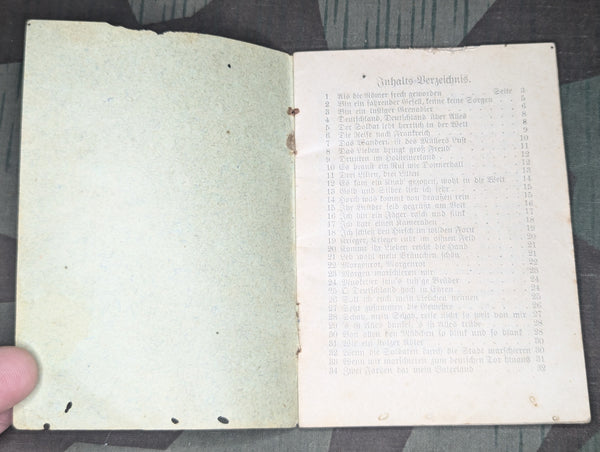 Inhalts-Verzeichnis.
1 Als die Römer frech geworden Seite 3
2 Bin ein fahrender Gesell, kenne keine Sorgen 5
3 Bin ein lustiger Grenadier 6
4 Deutschland, Deutschland über Alles 8
5 Der Soldat lebt herrlich in der Welt 8
6 Die Reise nach Frankreich 9
7 Das Wandern ist des Müllers Lust 10
8 Das Lieben bringt groß Freud 11
9 Drunten im Holsteinerland 12
10 Es braust ein Ruf wie Donnerhall
11 Drei Lilien, drei Lilien
12 Es kam ein Knab gezogen, wohl in die Welt 14
13 Gold und Silber lieb ich sehr 14
14 Horch was kommt von draußen rein 15
15 Ihr Brüder seid gegrüßt am Belt
16 Ich bin ein Jäger rasch und flink
17 Ich hatt einen Kameraden
18 Ich schieß den Hirsch im wilden Forst
19 im offnen Feld
20 Kommt ihr Lieben reicht die Hand
21 Leb wohl mein Bräutchen schön 21
22 Morgenrot, Morgenrot 22
23 Morgen marschieren wir 23
24 Musketier sein's lust'ge Brüder 24
25 O Deutschland hoch in Ehren 24
26 Soll ich euch mein Liebchen nennen 26
27 Gewehre
28 Schatz, mein Schatz, reise nicht so weit von mir
29 's ist Alles dunkel, 's ist Alles trübe 28
30 Von allen den Mädchen so blink und so blank
31 Wie ein stolzer Adler
32 Wenn die Soldaten durch die Stadt marschieren 30
33 Wenn wir marschieren zum deutschen Tor hinaus
34 Zwei Farben hat mein Vaterland 32